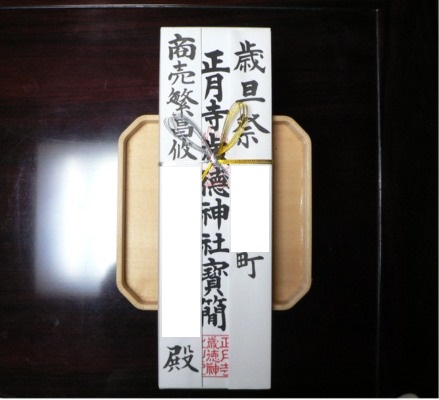 歳旦祭
町
正月寺歳德神社寳簡
商売繁昌攸
殿
正月寺
歳徳神